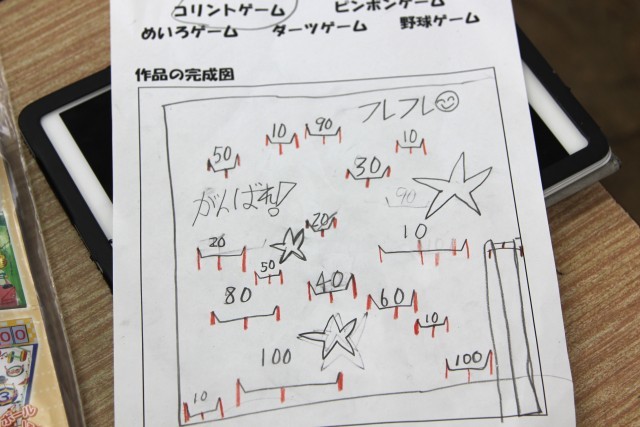 コリントゲーム ピンポンゲーム
めいろゲーム ダーツゲーム 野球ゲーム
作品の完成図
フレフレ
50 10 90 10
30
がんばれ! 90
20 20 10
50
80 40 60
10
100 100
10
00
3